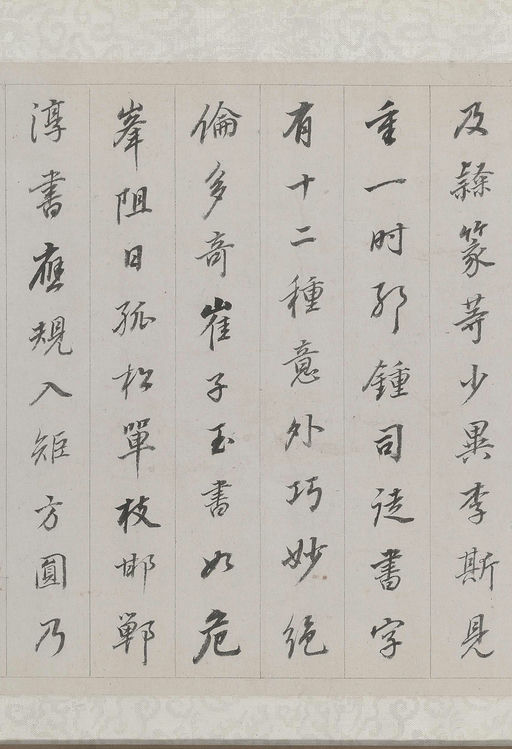 及隸篆等少異李斯見
重一时邪鍾司徒書字
有十二種意外巧妙絕
倫多奇崔子玉書如危
峯阻日孤松單枝邯鄲
淳書應規入矩方圓乃